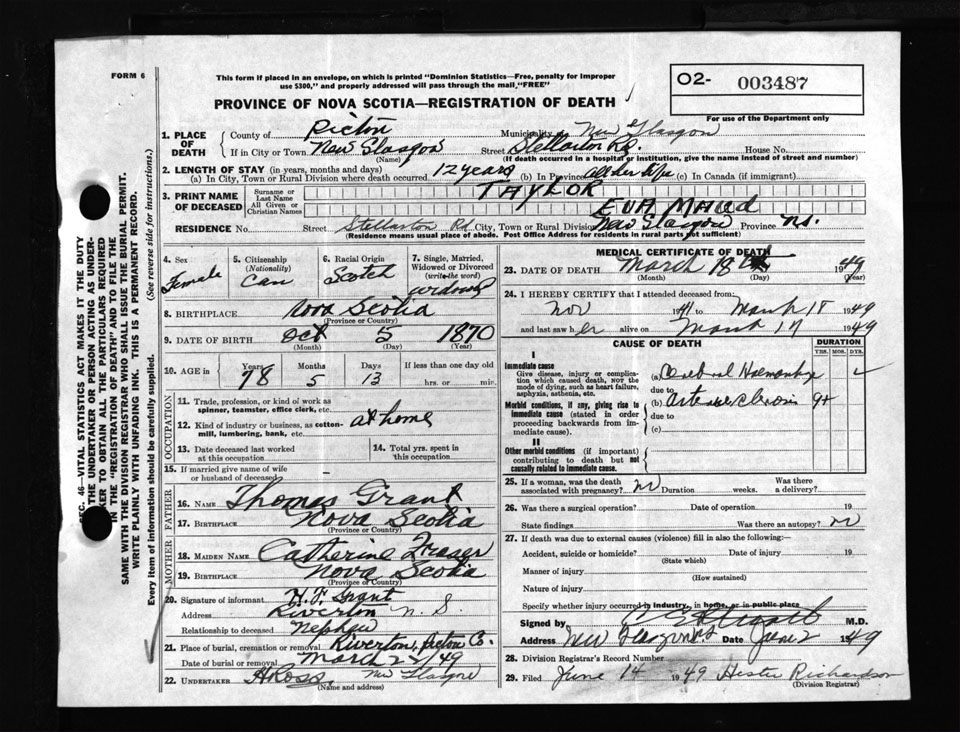 FORM 6
This form if placed in an envelope, on which is printed "Dominion Statistics—Free, penalty for improper
use $300," and properly addressed will pass through the mail, "FREE"
O2- 003487
For use of the Department only
PROVINCE OF NOVA SCOTIA—REGISTRATION OF DEATH
1. PLACE OF DEATH
County of Pictou Municipality New Glasgow
If in City or Town New Glasgow (Name) Street Stellarton Rd. House No.
(If death occurred in a hospital or institution, give the name instead of street and number)
2. LENGTH OF STAY (in years, months and days)
(a) In City, Town or Rural Division where death occurred 12 years (b) In Province all her life (c) In Canada (if immigrant)
3. PRINT NAME OF DECEASED
Surname or Last Name TAYLOR
All Given or Christian Names EVA MAUD
RESIDENCE No. Street Stellarton Rd City, Town or Rural Division New Glasgow Province N.S.
(Residence means usual place of abode. Post Office Address for residents in rural parts not sufficient)
4. Sex Female
5. Citizenship (Nationality) Can
6. Racial Origin Scotch
7. Single, Married, Widowed or Divorced (write the word) widowed
8. BIRTHPLACE Nova Scotia
(Province or Country)
9. DATE OF BIRTH Oct 5 1870
(Month) (Day) (Year)
10. AGE in Years 78 Months 5 Days 13 If less than one day old
hrs. or min.
OCCUPATION
11. Trade, profession, or kind of work as
spinner, teamster, office clerk, etc.
12. Kind of industry or business, as cotton-
mill, lumbering, bank, etc. at home
13. Date deceased last worked
at this occupation
14. Total yrs. spent in
this occupation
15. If married give name of wife
or husband of deceased –
FATHER
16. NAME Thomas Grant
17. BIRTHPLACE Nova Scotia
(Province or Country)
MOTHER
18. MAIDEN NAME Catherine Fraser
19. BIRTHPLACE Nova Scotia
(Province or Country)
20. Signature of informant H. F. Grant
Address Riverton N. S.
Relationship to deceased Nephew
21. Place of burial, cremation or removal Riverton, Pictou Co.
Date of burial or removal March 22/49
22. UNDERTAKER H Ross, New Glasgow
(Name and address)
MEDICAL CERTIFICATE OF DEATH
23. DATE OF DEATH March 18 1949
(Month) (Day) (Year)
24. I HEREBY CERTIFY that I attended deceased from:
Nov 1941 to March 18 1949
and last saw her alive on March 17 1949
CAUSE OF DEATH
DURATION
YRS. MOS. DYS.
I
Immediate cause
Give disease, injury or complication which caused death, NOT the
mode of dying, such as heart failure,
asphyxia, asthenia, etc.
(a) Cerebral Hemorrhage
due to
Morbid conditions, if any, giving rise to
immediate cause (stated in order
proceeding backwards from immediate cause).
(b) Arteriosclerosis 9+
due to
(c)
II
Other morbid conditions (if important)
contributing to death but not
causally related to immediate cause.
25. If a woman, was the death
associated with pregnancy? no Duration weeks. Was there
a delivery?
26. Was there a surgical operation? Date of operation 19
State findings Was there an autopsy? no
27. If death was due to external causes (violence) fill in also the following:
Accident, suicide or homicide? Date of injury 19
(State which)
Manner of injury
(How sustained)
Nature of injury
Specify whether injury occurred in industry, in home, or in public place
Signed by M.D.
Address New Glasgow NS Date June 2 1949
28. Division Registrar's Record Number
29. Filed June 14 1949 Hester Richardson
(Division Registrar)
SEC. 46—VITAL STATISTICS ACT MAKES IT THE DUTY
THE UNDERTAKER OR PERSON ACTING AS UNDER-
KER TO OBTAIN ALL THE PARTICULARS REQUIRED
IN THE "REGISTRATION OF DEATH" AND TO FILE THE
SAME WITH THE DIVISION REGISTRAR WHO SHALL ISSUE THE BURIAL PERMIT.
WRITE PLAINLY WITH UNFADING INK. THIS IS A PERMANENT RECORD.
Every item of information should be carefully supplied. (See reverse side for instructions.)